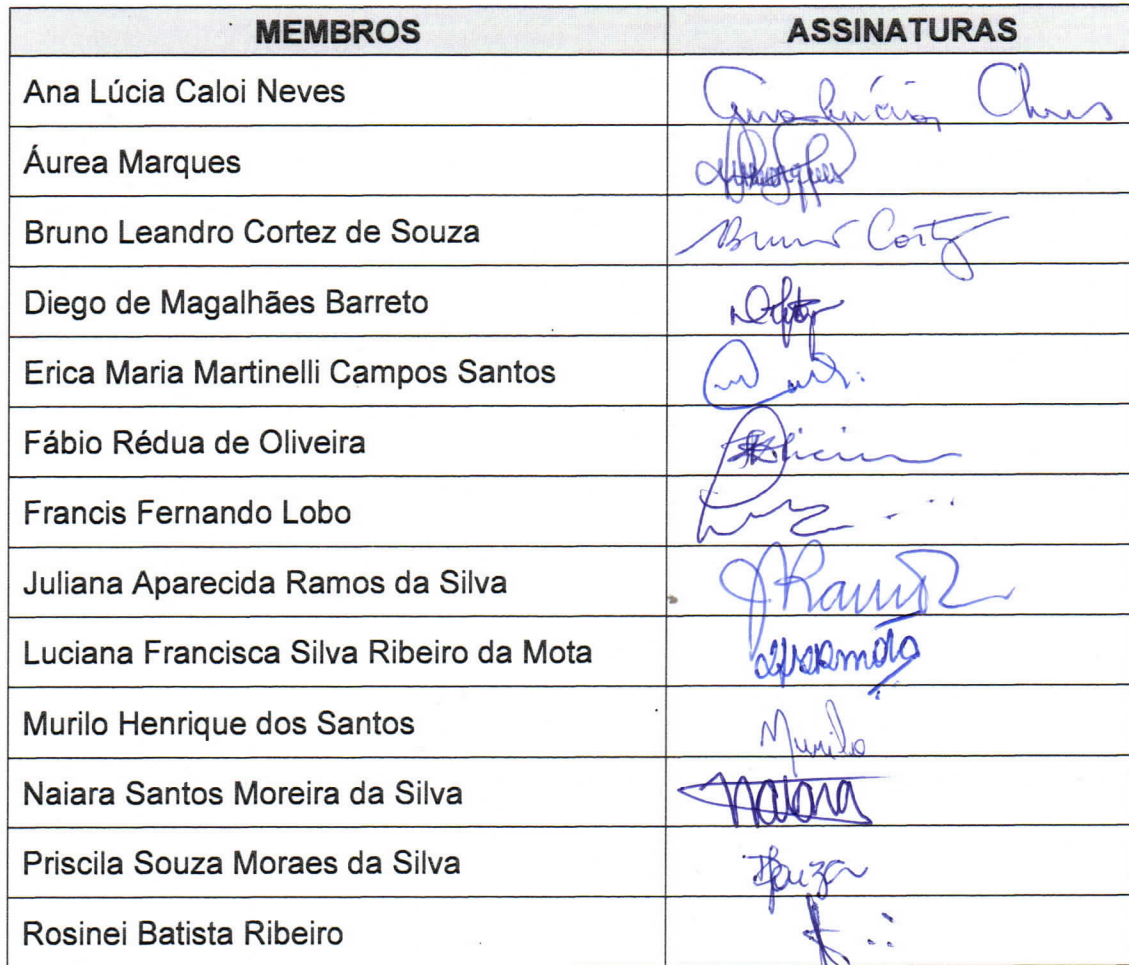 MEMBROS ASSINATURAS
Ana Lúcia Caloi Neves
Áurea Marques
Bruno Leandro Cortez de Souza Bruno Cortez
Diego de Magalhães Barreto
Erica Maria Martinelli Campos Santos
Fábio Rédua de Oliveira
Francis Fernando Lobo
Juliana Aparecida Ramos da Silva JRamos
Luciana Francisca Silva Ribeiro da Mota
Murilo Henrique dos Santos Murilo
Naiara Santos Moreira da Silva Naiara
Priscila Souza Moraes da Silva
Rosinei Batista Ribeiro